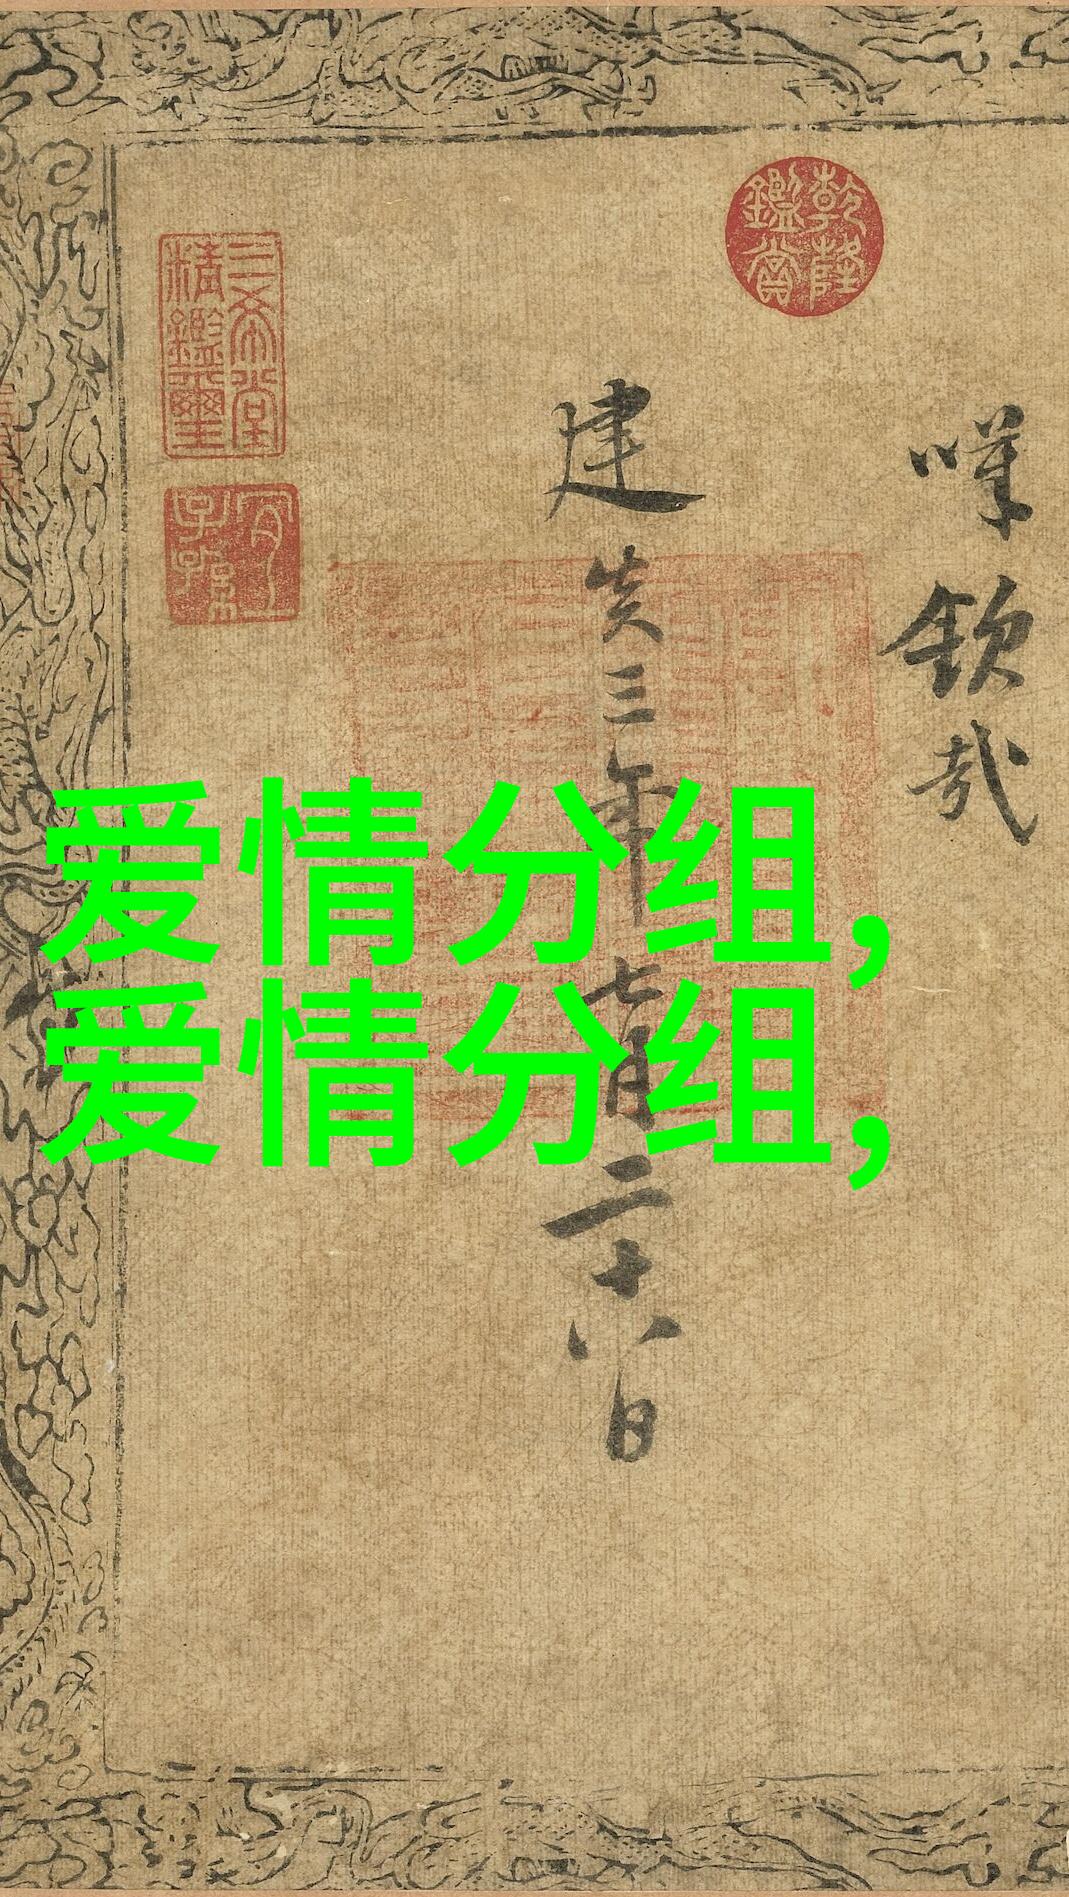 嘆欽哉
建炎三年七月二十八日
乾隆鑑賞
三希堂精鑑璽
宜子孫
爱情分组,
爱情分组,